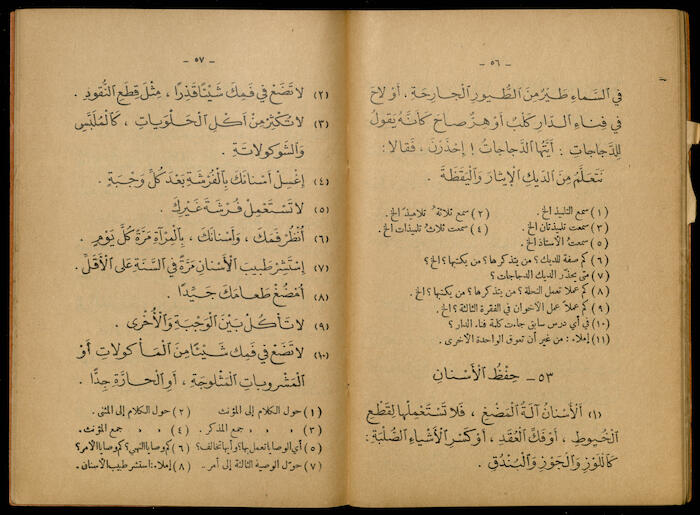 - ٥٦ -
في السَّماءِ طَيْرٌ مِنَ الطُّيورِ الْجارِحَةِ . أَوْ لاحَ
في فِناءِ الدّارِ كَلْبٌ أَوْ هِرٌّ صاحَ كَأَنَّهُ يَقولُ
لِلدَّجاجاتِ : أَيَّتُها الدَّجاجاتُ ! إِحْذَرْنَ ، فَقالا :
نَتَعَلَّمُ مِنَ الدّيكِ الْإِيثارَ وَالْيَقَظَةَ .
(١) سمع التلميذ الخ . (٢) سمع ثلاثة تلاميذ الخ .
(٣) سمعت تلميذتان الخ . (٤) سمعت ثلاث تلميذات الخ .
(٥) سمعتُ الأستاذَ الخ .
(٦) كم صفة للديك ؟ من يتذكرها ؟ من يكتبها ؟ الخ .
(٧) متى يحذّر الديك الدجاجات ؟
(٨) كم عملا تعمل النحلة ؟ من يتذكرها ؟ من يكتبها ؟ الخ .
(٩) كم عملاً عمل الأخوان في الفقرة الثالثة ؟ الخ .
(١٠) في أي درس سابق جاءت كلمة فناء الدار ؟
(١١) إملاء : من غير أن تعوق الواحدة الأخرى .
٥٣ - حِفْظُ الْأَسْنانِ
(١) الْأَسْنانُ آلَةُ الْمَضْغِ ، فَلا تَسْتَعْمِلْها لِقَطْعِ
الْخُيوطِ ، أَوْ فَكِّ الْعُقَدِ ، أَوْ كَسْرِ الْأَشْياءِ الصُّلْبَةِ :
كَاللَّوْزِ وَالْجَوْزِ وَالْبُنْدُقِ .
- ٥٧ -
(٢) لا تَضَعْ في فَمِكَ شَيْئًا قَذِرًا ، مِثْلَ قِطَعِ النُّقودِ .
(٣) لا تُكْثِرْ مِنْ أَكْلِ الْحَلَوِيّاتِ ، كَالْمُلَبَّسِ
وَالشّوكولاتَةِ .
(٤) إِغْسِلْ أَسْنانَكَ بِالْفُرْشَةِ بَعْدَ كُلِّ وَجْبَةٍ .
(٥) لا تَسْتَعْمِلْ فُرْشَةَ غَيْرِكَ .
(٦) أُنْظُرْ فَمَكَ ، وَأَسْنانَكَ ، بِالْمِرْآةِ مَرَّةً كُلَّ يَوْمٍ .
(٧) إِسْتَشِرْ طَبيبَ الْأَسْنانِ مَرَّةً في السَّنَةِ عَلى الْأَقَلِّ .
(٨) أُمْضُغْ طَعامَكَ جَيِّدًا .
(٩) لا تَأْكُلْ بَيْنَ الْوَجْبَةِ وَالْأُخْرى .
(١٠) لا تَضَعْ في فَمِكَ شَيْئًا مِنَ الْمَأْكولاتِ أَوْ
الْمَشْروباتِ الْمَثْلوجَةِ ، أَوِ الْحارَّةِ جِدًّا .
(١) حول الكلام إلى المؤنث (٢) حول الكلام إلى المثنى .
(٣) » » جمع المذكر . (٤) » » جمع المؤنث .
(٥) أي الوصايا تعمل بها ؟ وأيها تخالف ؟ (٦) كم وصايا النهي ؟ كم وصايا الأمر ؟
(٧) حوّل الوصية الثالثة إلى أمر . (٨) إملاء : استشر طبيب الأسنان .